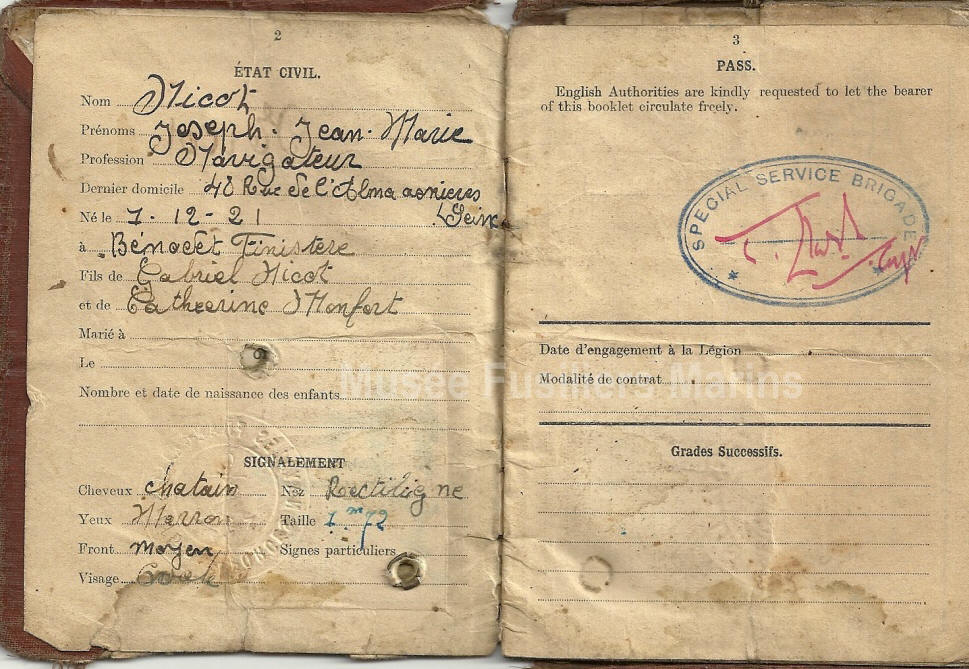 2
ÉTAT CIVIL.
Nom Nicot
Prénoms Joseph. Jean. Marie
Profession Navigateur
Dernier domicile 48 Rue de l'Alma asnieres
Seine
Né le 7-12-21
à Bénodet Finistère
Fils de Gabriel Nicot
et de Catherine Monfort
Marié à
Le
Nombre et date de naissance des enfants
SIGNALEMENT
Cheveux chatain Nez Rectiligne
Yeux Marron Taille 1m72
Front moyen Signes particuliers
Visage Ovale
3
PASS.
English Authorities are kindly requested to let the bearer
of this booklet circulate freely.
SPECIAL SERVICE BRIGADE
Date d'engagement à la Légion
Modalité de contrat
Grades Successifs.
Musée Fusiliers Marins